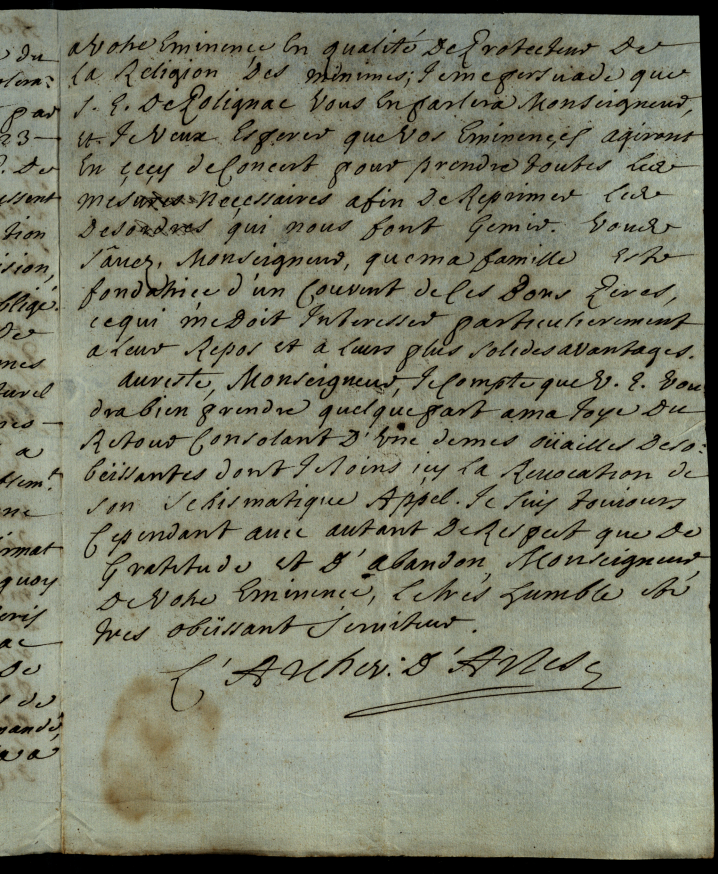 e du
olera=
par
23-
. De
essent
tion
ision,
bligé
De
mes
turel
nes-
a
blem.t
ne
rmat
quoy
eris
ac
De
s de
mandé,
a a
a Votre Eminence En qualité De Protecteur De
la Religion Des minimes; Je me persuade que
S. E. De Polignac Vous En parlera Monseigneur,
et Je Veux Esperer que Vos Eminences agiront
En cecy de Concert pour prendre toutes les
mesures necessaires afin De Reprimer les
Desordres qui nous font Gemir. Vous
Sãuez, Monseigneur, que ma famille este
fondatrice d'un Couvent de Ces Bons Peres,
ce qui me Doit Interesser particulierement
a leur Repos et à leurs plus solides avantages.
au reste, Monseigneur, Je Compte que V. E. Vou
dra bien prendre quelque part a ma Joye Du
Retour Consolant D'Une de mes oüailles Deso=
beissantes dont Je Joins icy La Revocation de
son Schismatique Appel. Je suis toujours
Cependant avec autant De Respect que De
Gratitude et D'abandon, Monseigneur
De Votre Eminence, Le tres humble et
tres obëissant Serviteur.
L'Archev: D'Arles